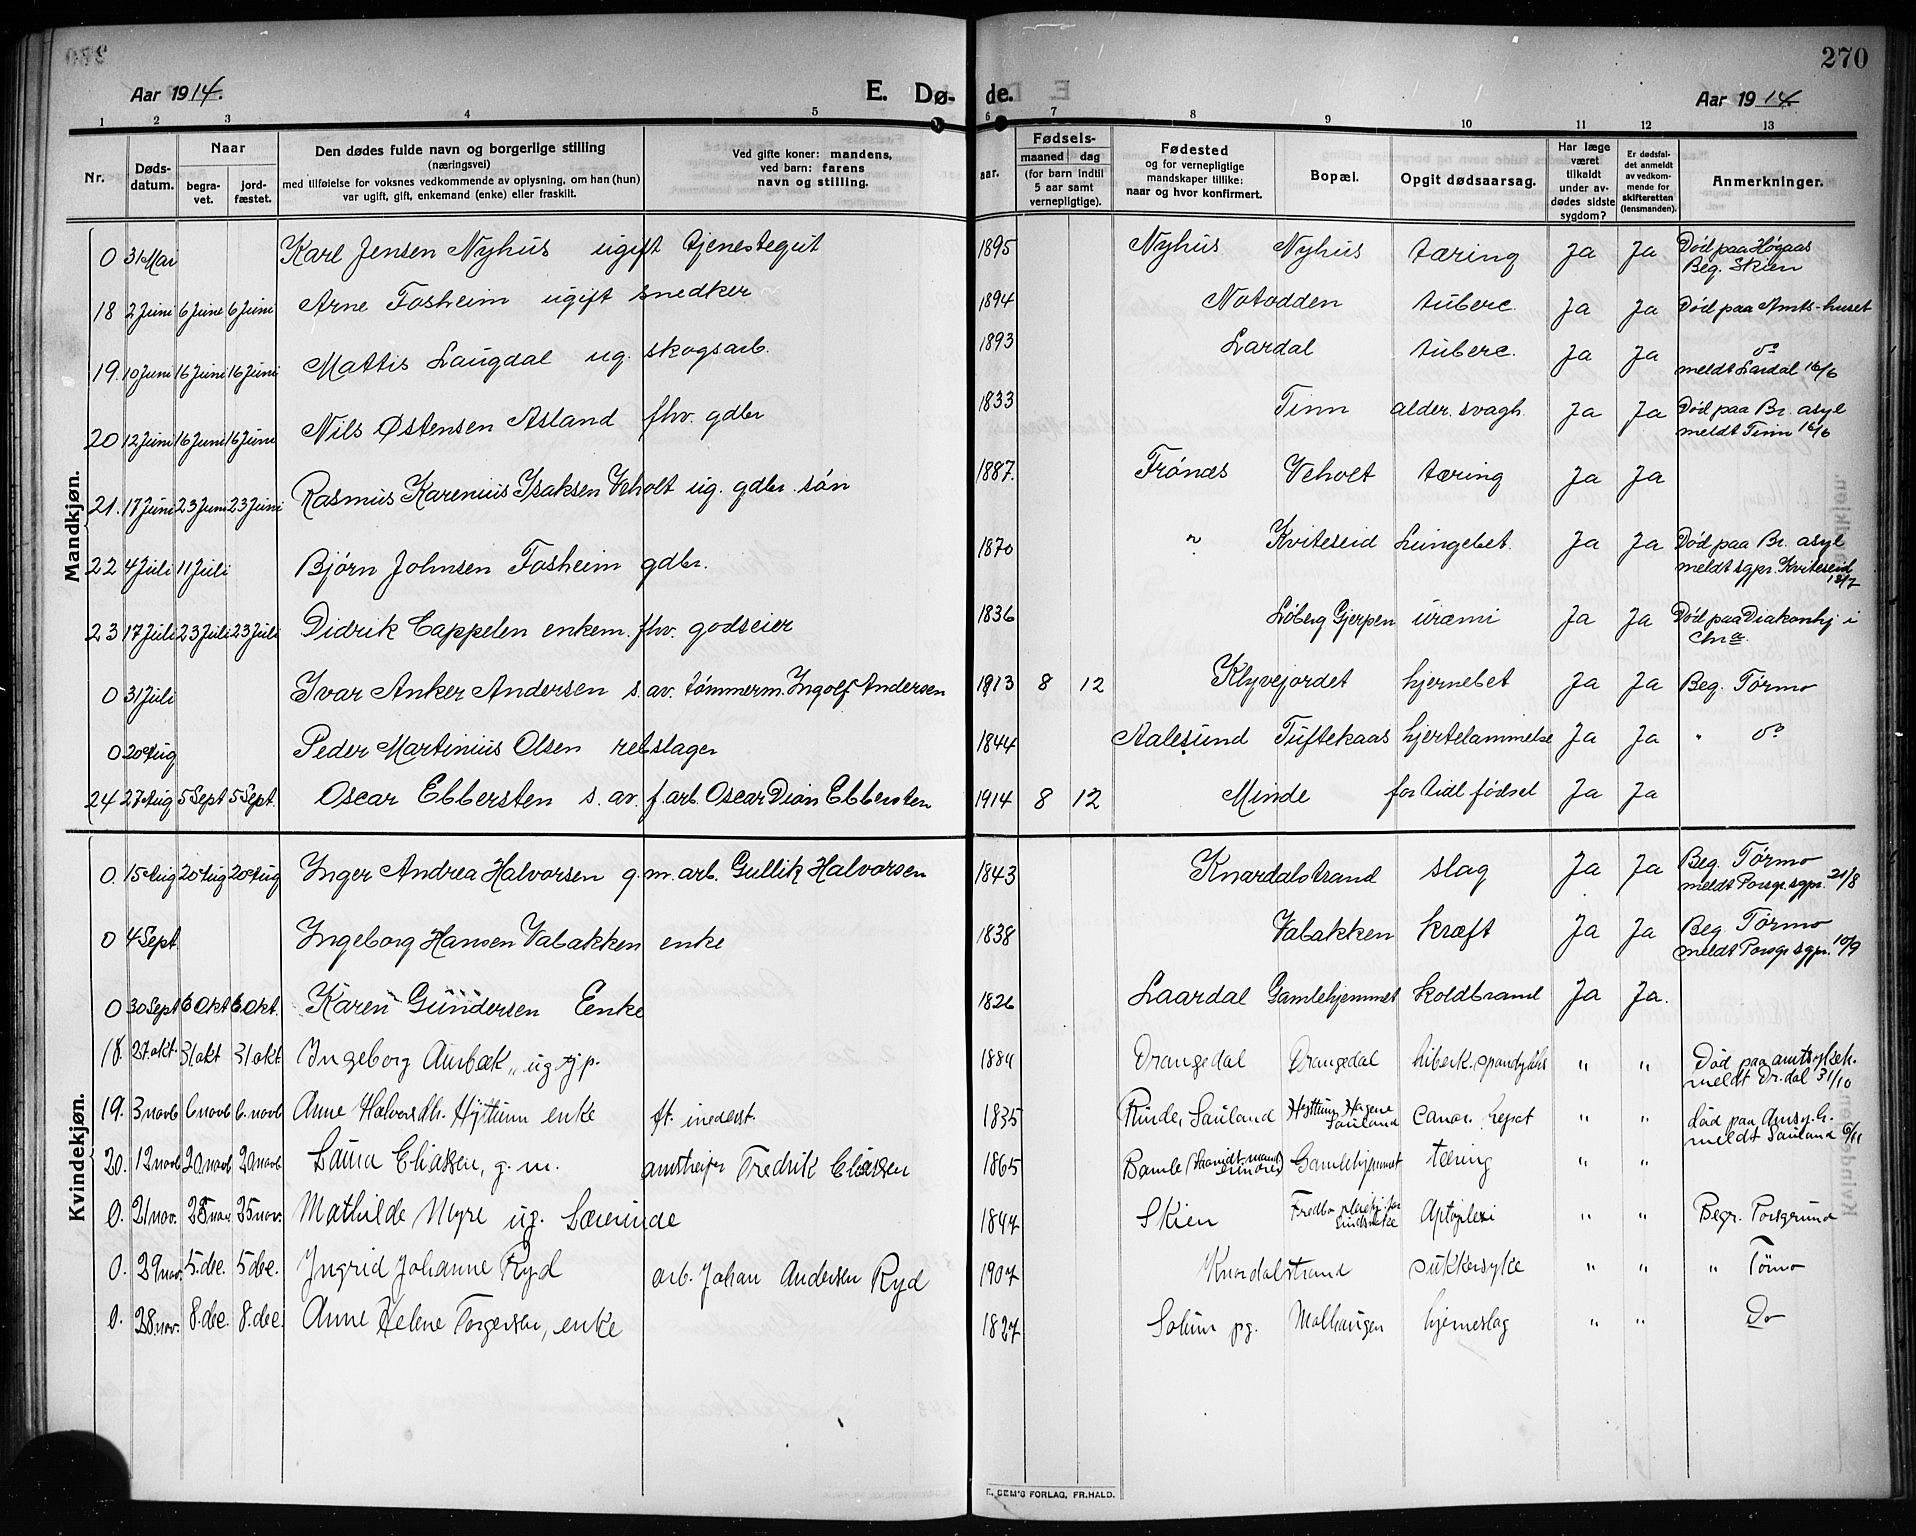 270
Aar 1914. E. Dø- de. Aar 1914
1 2 3 4 5 6 7 8 9 10 11 12 13
Nr.
Døds-
datum.
Naar
begra-
vet.
jord-
fæstet.
Den dødes fulde navn og borgerlige stilling
(næringsvei)
med tilføielse for voksnes vedkommende av oplysning, om han (hun)
var ugift, gift, enkemand (enke) eller fraskilt.
Ved gifte koner: mandens,
ved barn: farens
navn og stilling.
Fødsels-
aar.
maaned dag
(for barn indtil
5 aar samt
vernepligtige).
Fødested
og for vernepligtige
mandskaper tillike:
naar og hvor konfirmert.
Bopæl.
Opgit dødsaarsag.
Har læge
været
tilkaldt
under av-
dødes sidste
sygdom?
Er dødsfal-
det anmeldt
av vedkom-
mende for
skifteretten
(lensmanden).
Anmerkninger.
Mandkjøn.
0 31 Mai Karl Jensen Nyhus ugift tjenestegut 1895 Nyhus Nyhus tæring Ja Ja Død paa Høgaas
Beg. Skien
18 2 Juni 6 June 6 Juni Arne Fosheim ugift snedker 1894 Notodden tuberc. Ja Ja Død paa Amts-huset
19. 10 Juni 16 Juni 16 Juni Mattis Laugdal ug. skogsarb. 1893 Lardal tuberc. Ja Ja do
meldt Lardal 16/6
20 12 Juni 16 Juni 16 Juni Nils Østensen Asland fhv. gdbr 1833 Tinn alder. svagh. Ja Ja Død paa Br. asyl
meldt Tinn 16/6
21. 17 Juni 23 Juni 23 Juni Rasmus Karenius Isaksen Veholt ug. gdbr. søn 1887. Frónæs Veholt tæring Ja Ja
22 4 Juli 11 Juli Bjørn Johnsen Fosheim gdbr. 1870 " Kviteseid Lungebet. Ja Ja Død paa Br. asyl
meldt sgpr. Kviteseid
13/7
23 17 Juli 23 Juli 23 Juli Didrik Cappelen enkem. fhv. godseier 1836 Løberg Gjerpen uræmi Ja Ja Død paa Diakonhj i
Chra.
0 31 Juli Ivar Anker Andersen s. av. tømmerm. Ingolf Andersen 1913 8 12 Klyvejordet hjernebet Ja Ja Beg. Tørmo
0 20 Aug Peder Martinius Olsen rebslager 1844 Aalesund Tuftekaas hjertelammelse Ja Ja " do
24 27 Aug 5 Sept 5 Sept. Oscar Ebbersten s. av. f. arb. Oscar Dian Ebbersten 1914 8 12 Minde for tidl fødsel Ja Ja
Kvindekjøn.
0. 15 Aug 20 Aug 20 Aug Inger Andrea Halvorsen g. m. arb. Gullik Halvorsen 1843 Knardalstrand slag Ja Ja Beg. Tørmo
meldt Porsgr. sgpr. 21/8
0 4 Sept Ingeborg Hansen Vabakken enke 1838 Vabakken kræft Ja Ja Beg Tørmo
meldt Porsgr sgpr. 10/9
0 30 Sept 6 Okt 6 Okt. Karen Gundersen Eenke 1826 Laardal Gamlehjemmet koldbrand Ja Ja.
18. 27 okt. 31 okt 31 okt Ingeborg Aasbæk, ug tjp. 1884 Drangedal Drangedal " " Død paa amtssykeh.
meldt Dr.dal 31/10
19. 3 novb 6 novb 6. novb Anne Halvorsdh. Hyttum enke ft. inederst. 1835 Rinde, Sauland Hyttum, Hagene
Sauland cancr. hepat " " død paa
meldt Sauland 6/11
20. 12 novb 20 novb 20 novb Laura Eliassen, g. m. Fredrik Eliassen 1865 Bamle Gamlehjemmet tæring " "
0. 21 nov. 25 nov 25 nov. Mathilde Myre ug. Lærerinde 1844 Skien Fredbo pleiehj. for
Sindssyke Aptoplexi " " Begr. Porsgrund
0. 29 nov. 5. dec. 5 dec. Ingrid Johanne Ryd arb. Johan Andersen Ryd 1907 Knardalstrand sukkersyke " " " Tømo
0. 28 nov. 8. dec. 8. dec. Anne Helene Torgersen, enke 1827 Solum pg. Molhaugen hjerneslag " " Do
E. SEM'S FORLAG, FR.HALD.